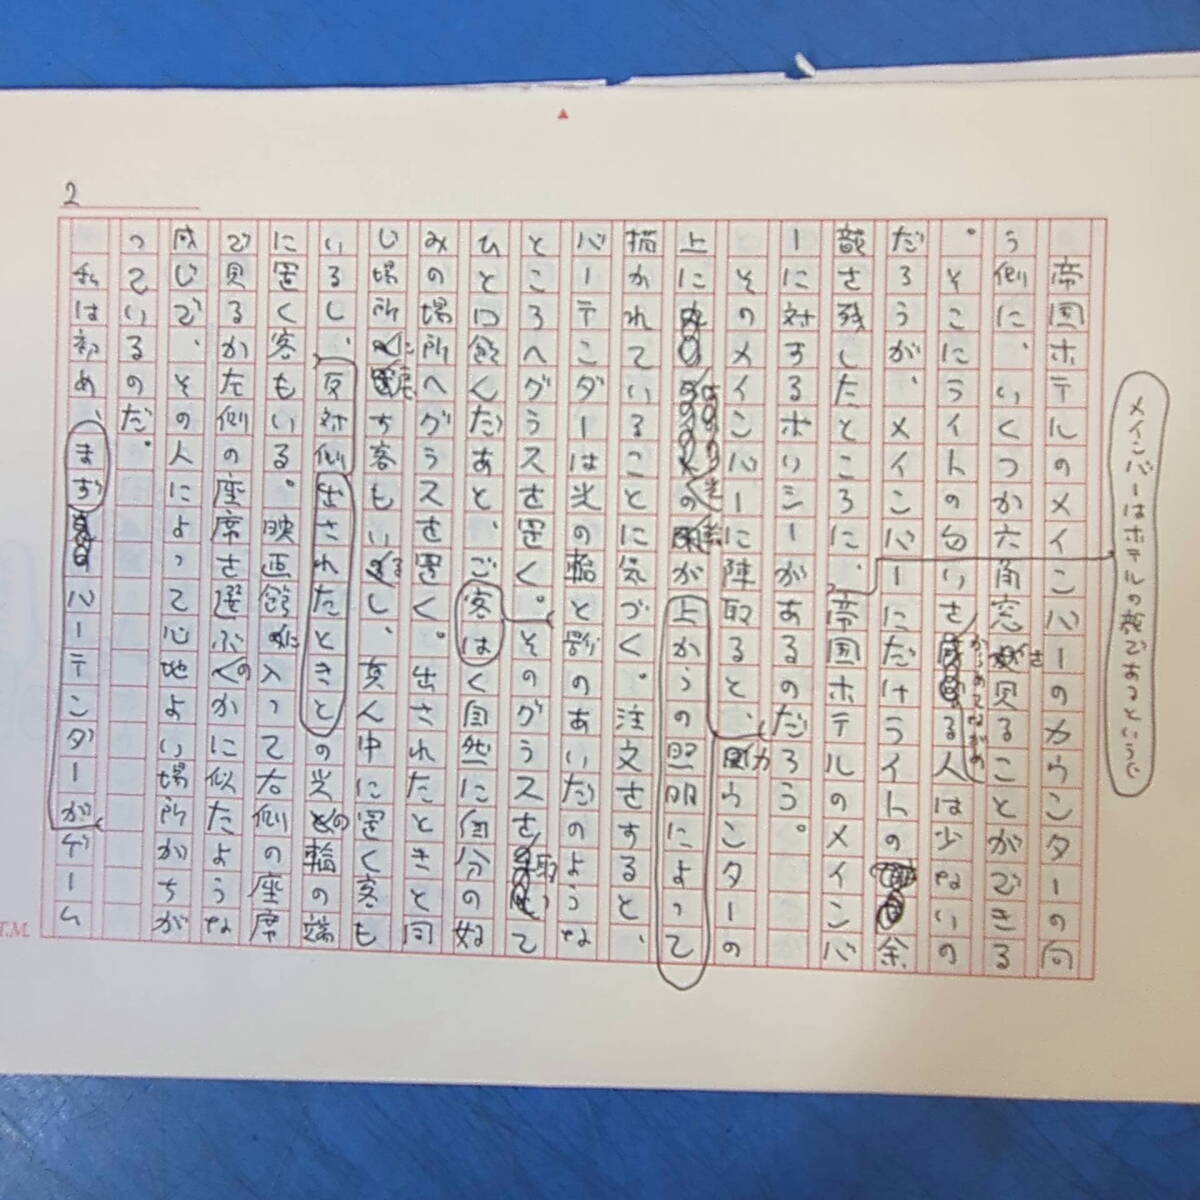 2
メインバーはホテルの顔であるという
帝国ホテルのメインバーのカウンターの向
う側に、いくつか六角窓さ見ることができる
。そこにライトの匂いさ
からめてながめる人は少ないの
だろうが、メインバーにだけライトの余
韻さ残したところに、帝国ホテルのメインバ
ーに対するポリシーがあるのだろう。
そのメインバーに陣取ると、カウンターの
上に
光の
絵が上からの照明によって
描かれていることに気づく。注文さすると、
バーテンダーは光の輪と影のあいだのような
ところへグラスを置く。そのグラスさ取って
ひと口飲んだあと、ご客はく自然に自分の好
みの場所へグラスを置く。出されたときと同
じ場所に
す客もいるし、真ん中に置く客も
いるし、反対側出されたときとの光の輪の端
に置く客もいる。映画館に入って右側の座席
で見るか左側の座席さ選ぶのかに似たような
感じで、その人によって心地よい場所がちが
っているのだ。
私は初め、まず
バーテンダーがゲーム
T.M.